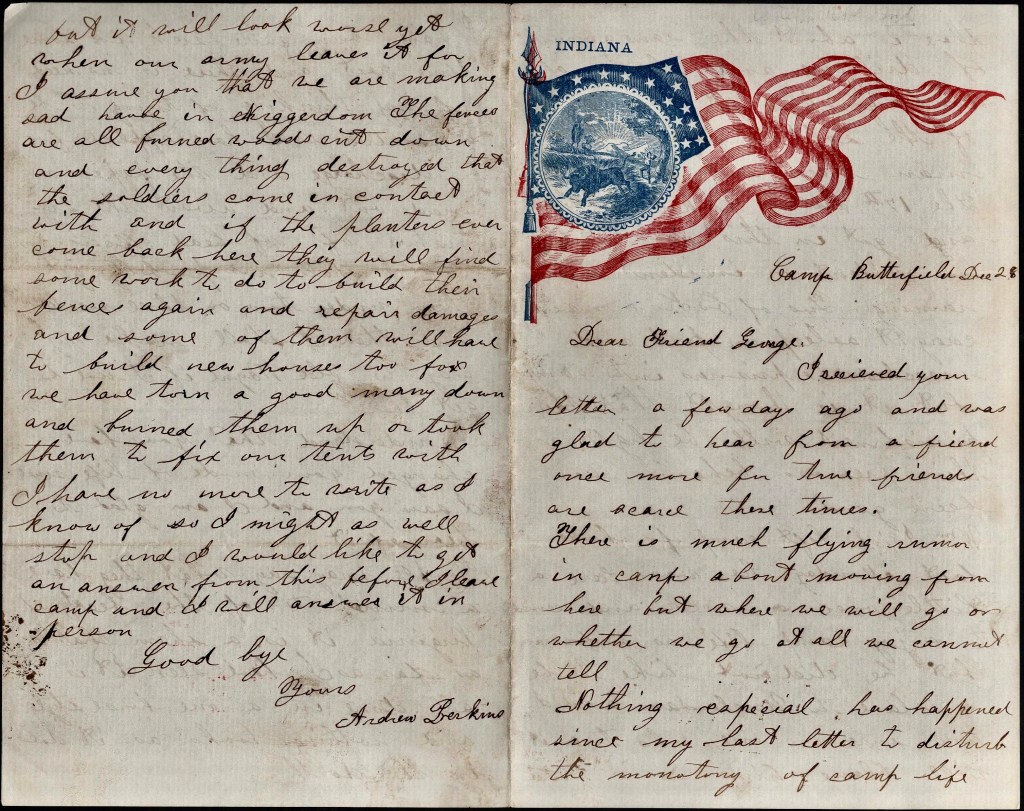 INDIANA
Camp Butterfield Dec 28
Dear Friend George.
I recieved your
letter a few days ago and was
glad to hear from a friend
once more for true friends
are scarce these times.
There is much flying rumor
in camp about moving from
here but where we will go or
whether we go at all we cannot
tell
Nothing especial has happened
since my last letter to disturb
the monotony of camp life
but it will look worse yet
when our army leaves it for
I assure you that we are making
sad havoc in Niggerdom The fences
are all burned woods cut down
and every thing destroyed that
the soldiers come in contact
with and if the planters ever
come back here they will find
some work to do to build their
fence again and repair damages
and some of them will have
to build new houses too for
we have torn a good many down
and burned them up or took
them to fix our tents with
I have no more to write as I
know of so I might as well
stop and I would like to get
an answer from this before I leave
camp and I will answer it in
person
Good bye
Yours
Andrew Perkins